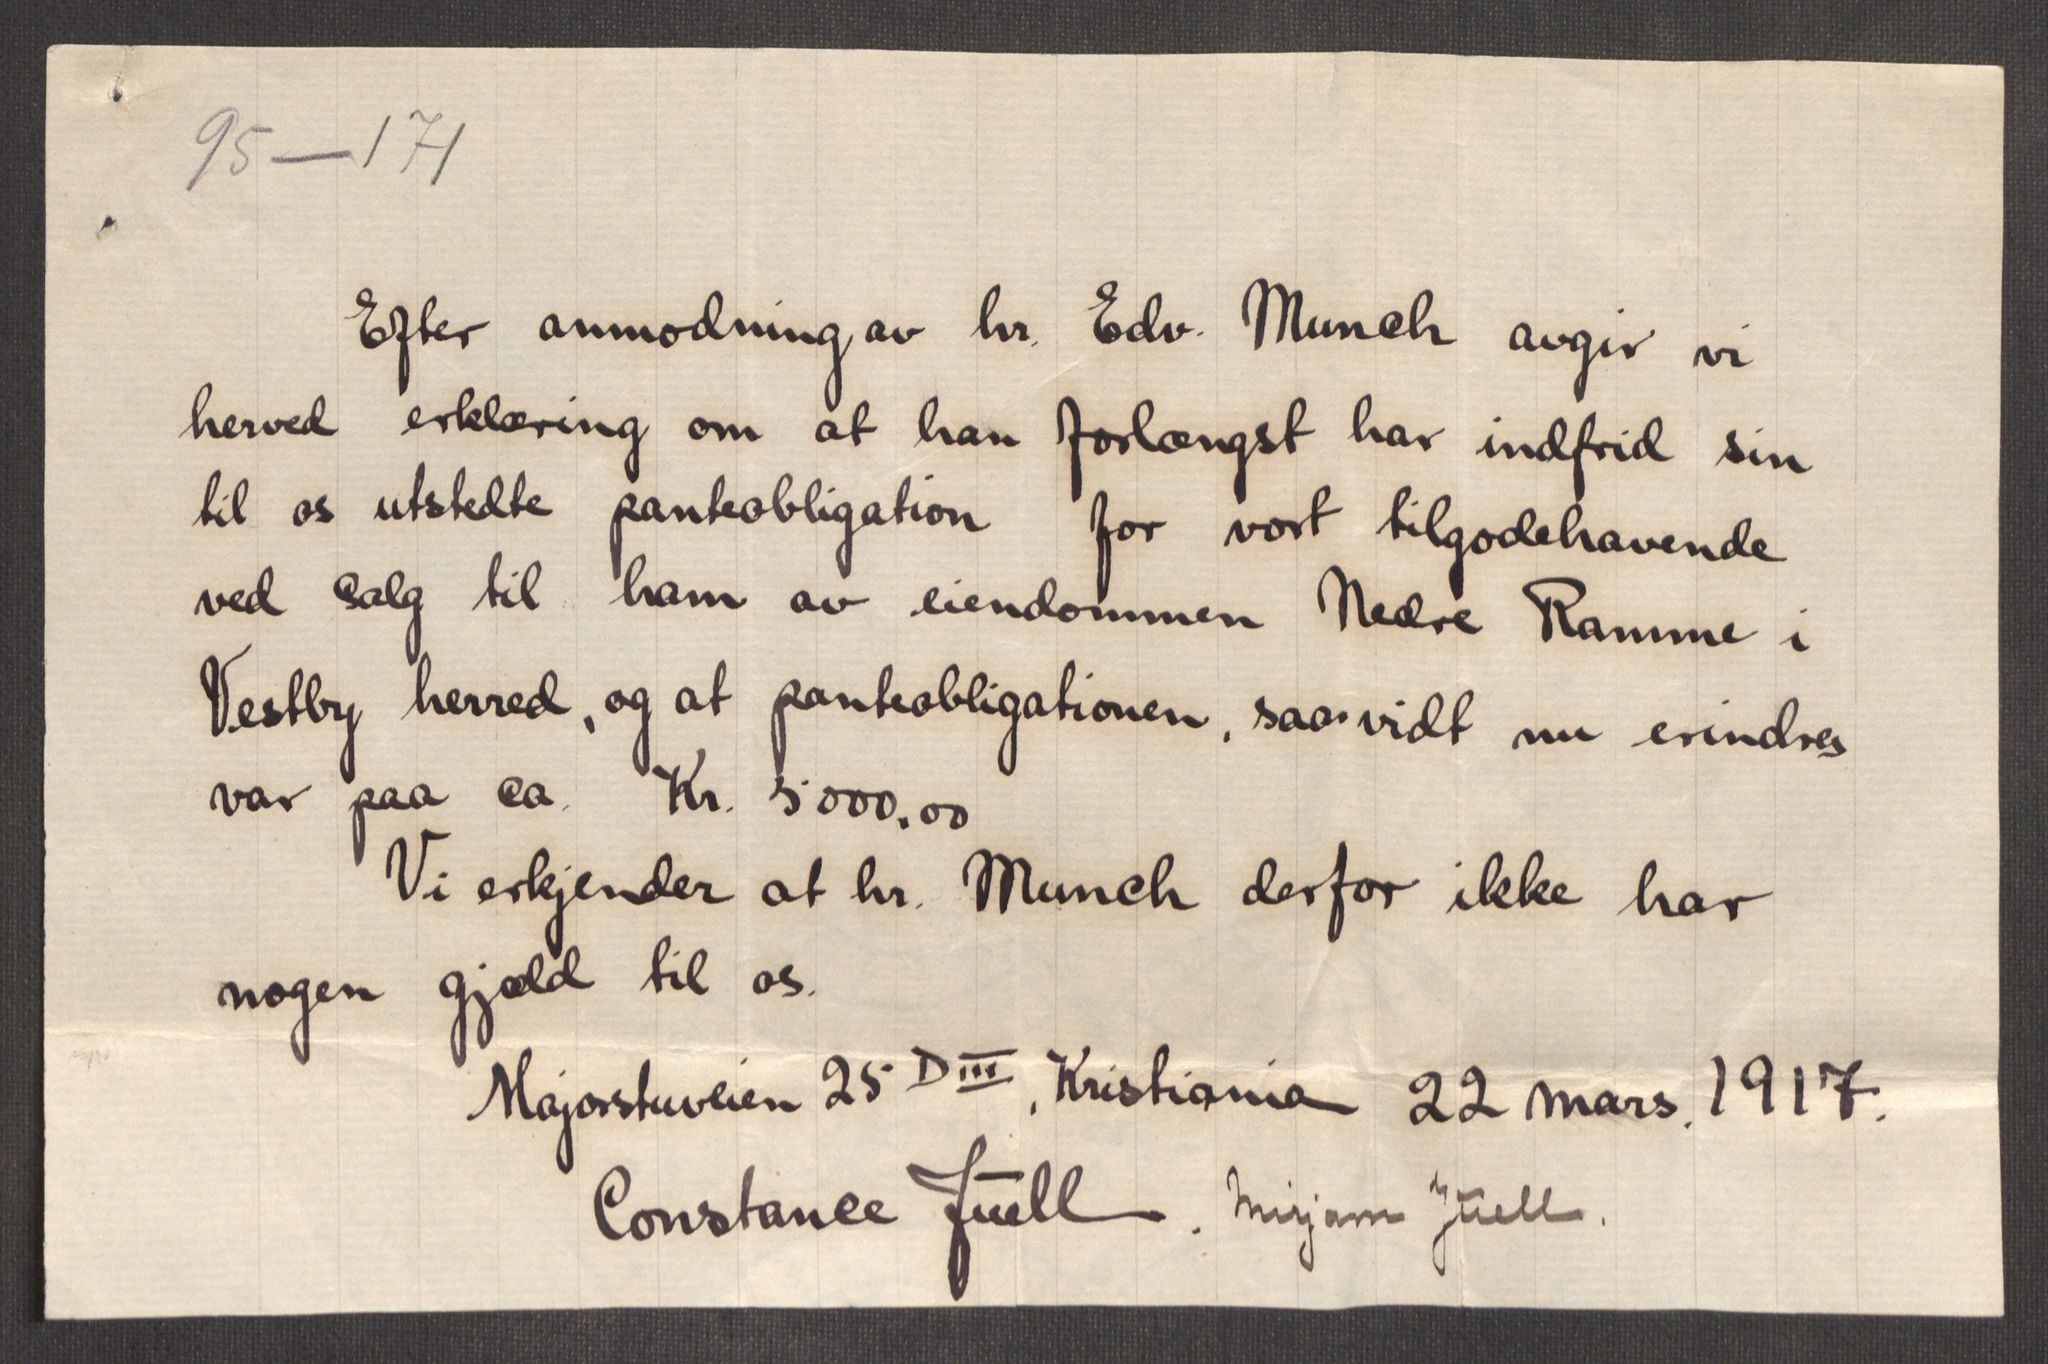 95 — 171
Efter anmodning av hr. Edv. Munch avgir vi
herved erklæring om at han forlængst har indfrid sin
til os utstedte panteobligation for vort tilgodehavende
ved salg til ham av eiendommen Nedre Ramme i
Vestby herred, og at panteobligationen, saavidt nu erindres
var paa ca. Kr. 5000,00
Vi erkjender at hr. Munch derfor ikke har
nogen gjæld til os.
Majorstuveien 25 D III, Kristiania 22 mars. 1917.
Constance Juell. Mirjam Juell.